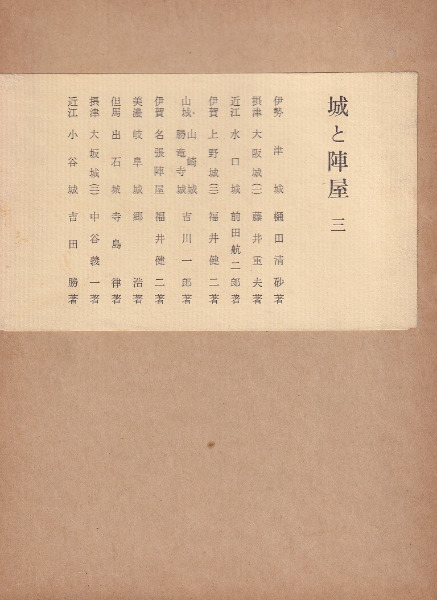 城と陣屋 三
伊勢 津城 樋田清砂著
摂津 大阪城(一) 藤井重夫著
近江 水口城 前田航二郎著
伊賀 上野城(三) 福井健二著
山城・山崎城 勝竜寺城 吉川一郎著
伊賀 名張陣屋 福井健二著
美濃 岐阜城 郷浩著
但馬 出石城 寺島律著
摂津 大坂城(二) 中谷義一著
近江 小谷城 吉田勝著